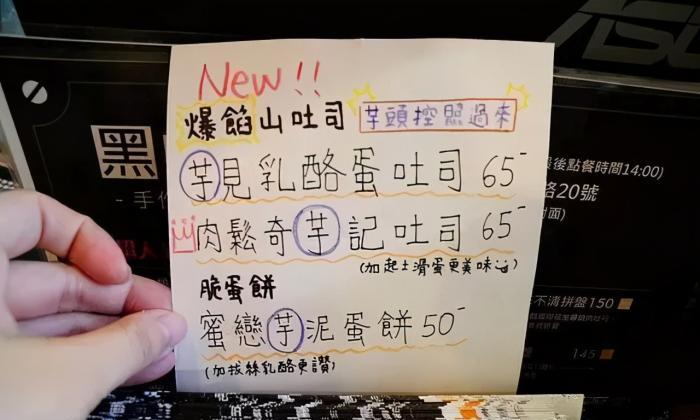 New!!
爆餡山吐司 芋頭控照過來
芋見乳酪蛋吐司 65-
肉鬆奇芋記吐司 65-
(加起士滑蛋更美味)
脆蛋餅
蜜戀芋泥蛋餅 50-
(加拔絲乳酪更讚)
黑
- 手作
後點餐時間14:00)
路20號
對面)
不清拼盤150
145
ASUS